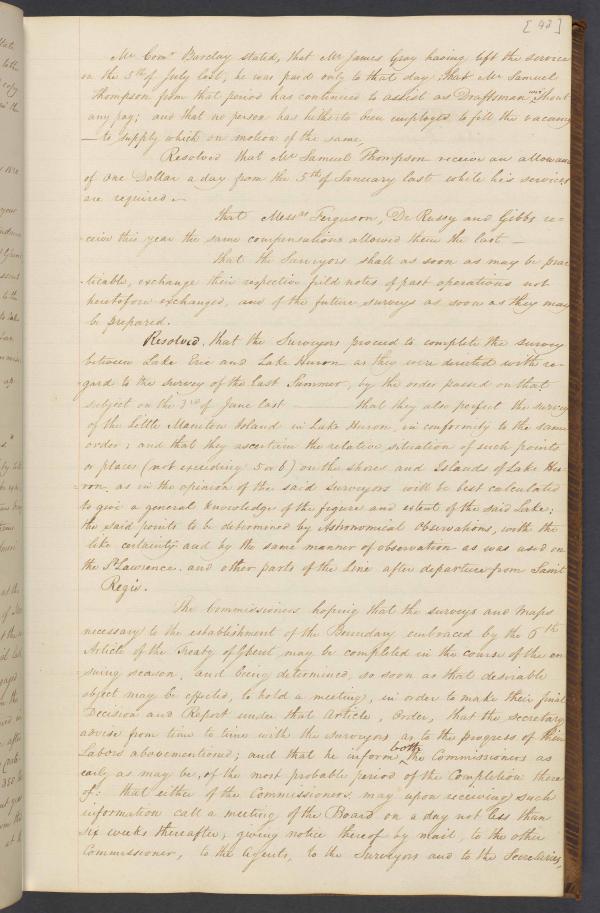 [43]
Mr Comr Barclay stated, that Mr James Gray having left the service
on the 5th of July last, he was paid only to that day. That Mr Samuel
Thompson from that period has continued to assist as Draftsman, without
any pay; and that no person has hitherto been employed to fill the vacancy
— to supply which on motion of the same,
Resolved that Mr Samuel Thompson receive an allowance
of One Dollar a day from the 5th of January last while his services
are required.—
That Messrs Ferguson, De Russy and Gibbs re-
ceive this year the same compensations allowed them the last —
That the Surveyors shall as soon as may be prac-
ticable, exchange their respective field notes of past operations not
heretofore exchanged, and of the future surveys as soon as they may
be prepared.
Resolved, that the Surveyors proceed to complete the survey
between Lake Erie and Lake Huron as they were directed with re-
gard to the survey of the last Summer, by the order passed on that
subject on the 3rd of June last ——— that they also perfect the survey
of the Little Maniton Island in Lake Huron, in conformity to the same
order; and that they ascertain the relative situation of such points
or places (not exceeding 5 or 6) on the shores and Islands of Lake Hu-
ron, as in the opinion of the said surveyors will be best calculated
to give a general knowledge of the figure and extent of the said Lake;
the said points to be determined by Astronomical Observations, with the
like certainty and by the same manner of observation as was used on
the St Lawrence, and other parts of the Line after departure from Saint
Regis.
The Commissioners hoping that the surveys and Maps
necessary to the establishment of the Boundary embraced by the 6th
Article of the Treaty of Ghent, may be completed in the course of the en-
suing season, and being determined, so soon as that desirable
object may be effected, to hold a meeting, in order to make their final
Decision and Report under that Article, Order, that the secretary
advise from time to time with the surveyors as to the progress of their
Labors abovementioned; and that he inform both the Commissioners as
early as may be, of the most probable period of the Completion there
of: that either of the Commissioners may upon receiving such
information call a meeting of the Board on a day not less than
six weeks thereafter, giving notice thereof by mail, to the other
Commissioner, to the Agents, to the Surveyors and to the Secretaries,